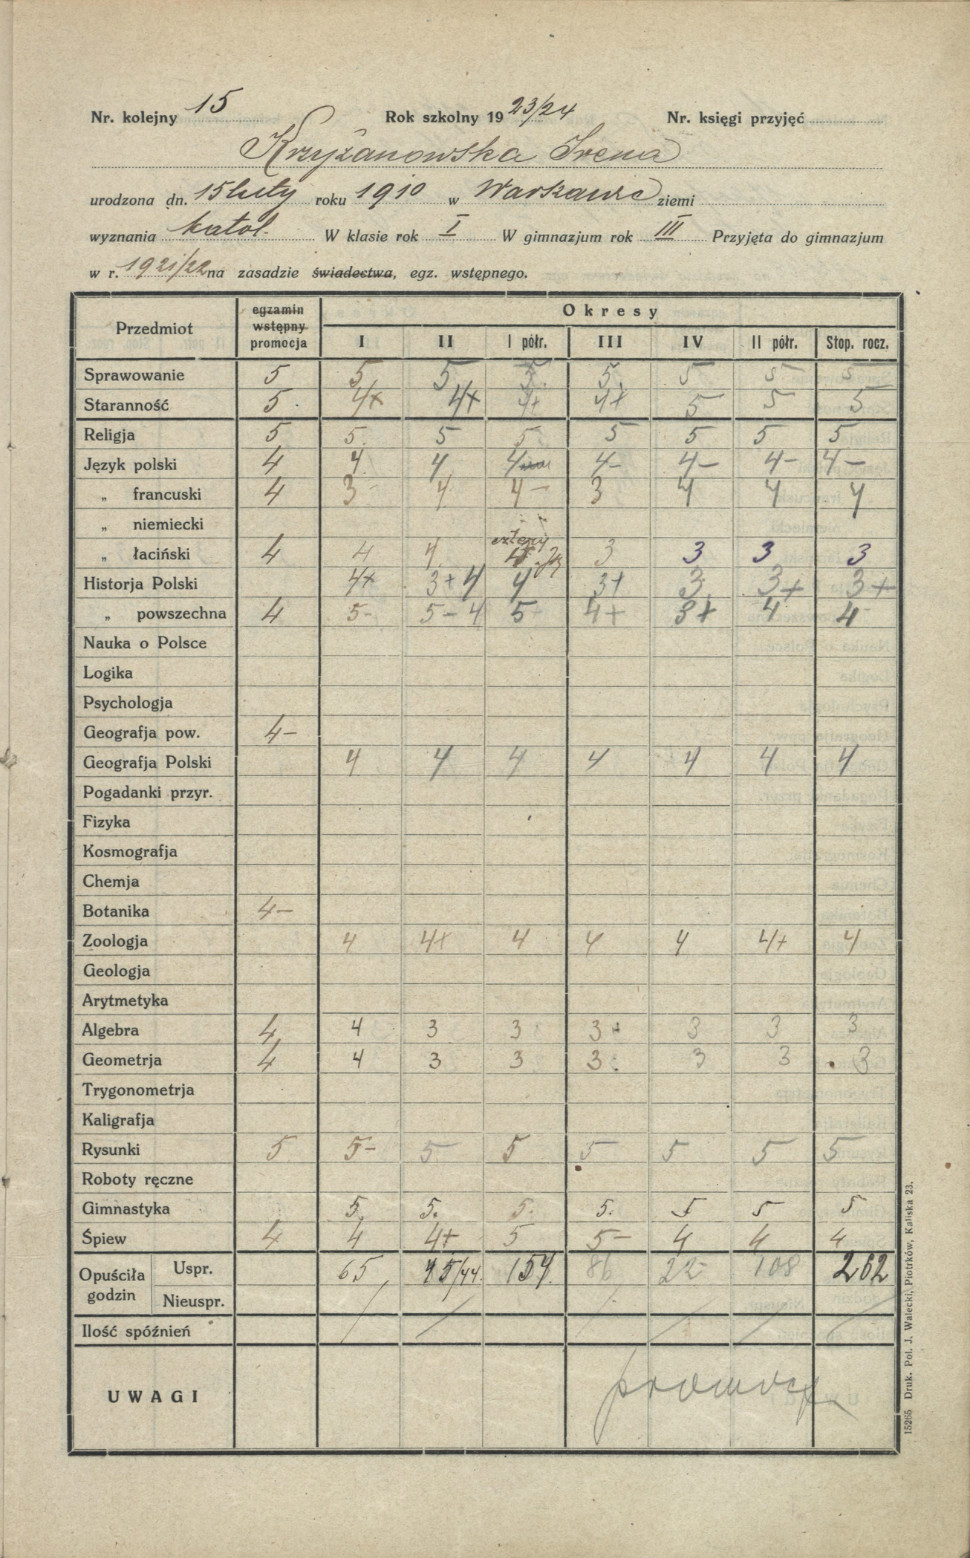 Nr. kolejny 15 Rok szkolny 1923/24 Nr. księgi przyjęć
Krzyżanowska Irena
urodzona dn. 15 luty roku 1910 w Warszawie ziemi
wyznania katol. W klasie rok I W gimnazjum rok III Przyjęta do gimnazjum
w r. 1921/22 na zasadzie świadectwa, egz. wstępnego.
Przedmiot egzamin wstępny promocja Okresy
I II I półr. III IV II półr. Stop. rocz.
Sprawowanie 5 5 5 5 5 5 5 5
Staranność 5 4+ 4+ 4+ 4+ 5 5 5
Religja 5 5 5 5 5 5 5 5
Język polski 4 4 4 4 4- 4- 4- 4-
„ francuski 4 3- 4 4- 3 4 4 4
„ niemiecki
„ łaciński 4 4 4 cztery 3 3 3 3
Historja Polski 4+ 3+ 4 4 3+ 3 3+ 3+
„ powszechna 4 5- 5- 4 5 4+ 3+ 4 4
Nauka o Polsce
Logika
Psychologja
Geografja pow. 4-
Geografja Polski 4 4 4 4 4 4 4
Pogadanki przyr.
Fizyka
Kosmografja
Chemja
Botanika 4-
Zoologja 4 4+ 4 4 4 4+ 4
Geologja
Arytmetyka
Algebra 4 4 3 3 3 3 3 3
Geometrja 4 4 3 3 3 3 3 3
Trygonometrja
Kaligrafja
Rysunki 5 5- 5 5 5 5 5 5
Roboty ręczne
Gimnastyka 5. 5. 5. 5. 5 5 5
Śpiew 4 4 4+ 5 5- 4 4 4
Opuściła godzin Uspr. 65 /44 157. 86 22 108 262
Nieuspr.
Ilość spóźnień
UWAGI
15265 Druk. Pol. J. Walecki, Piotrków, Kaliska 23.